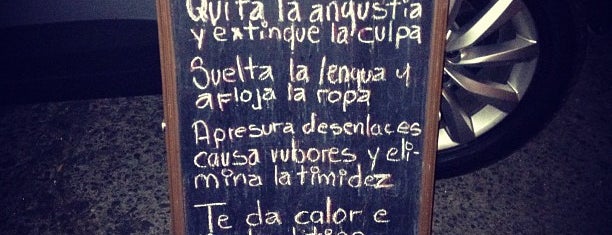 Quita la angustia
y extingue la culpa
Suelta la lengua y
afloja la ropa
Apresura desenlaces
causa rubores y eli-
mina la timidez
Te da calor e